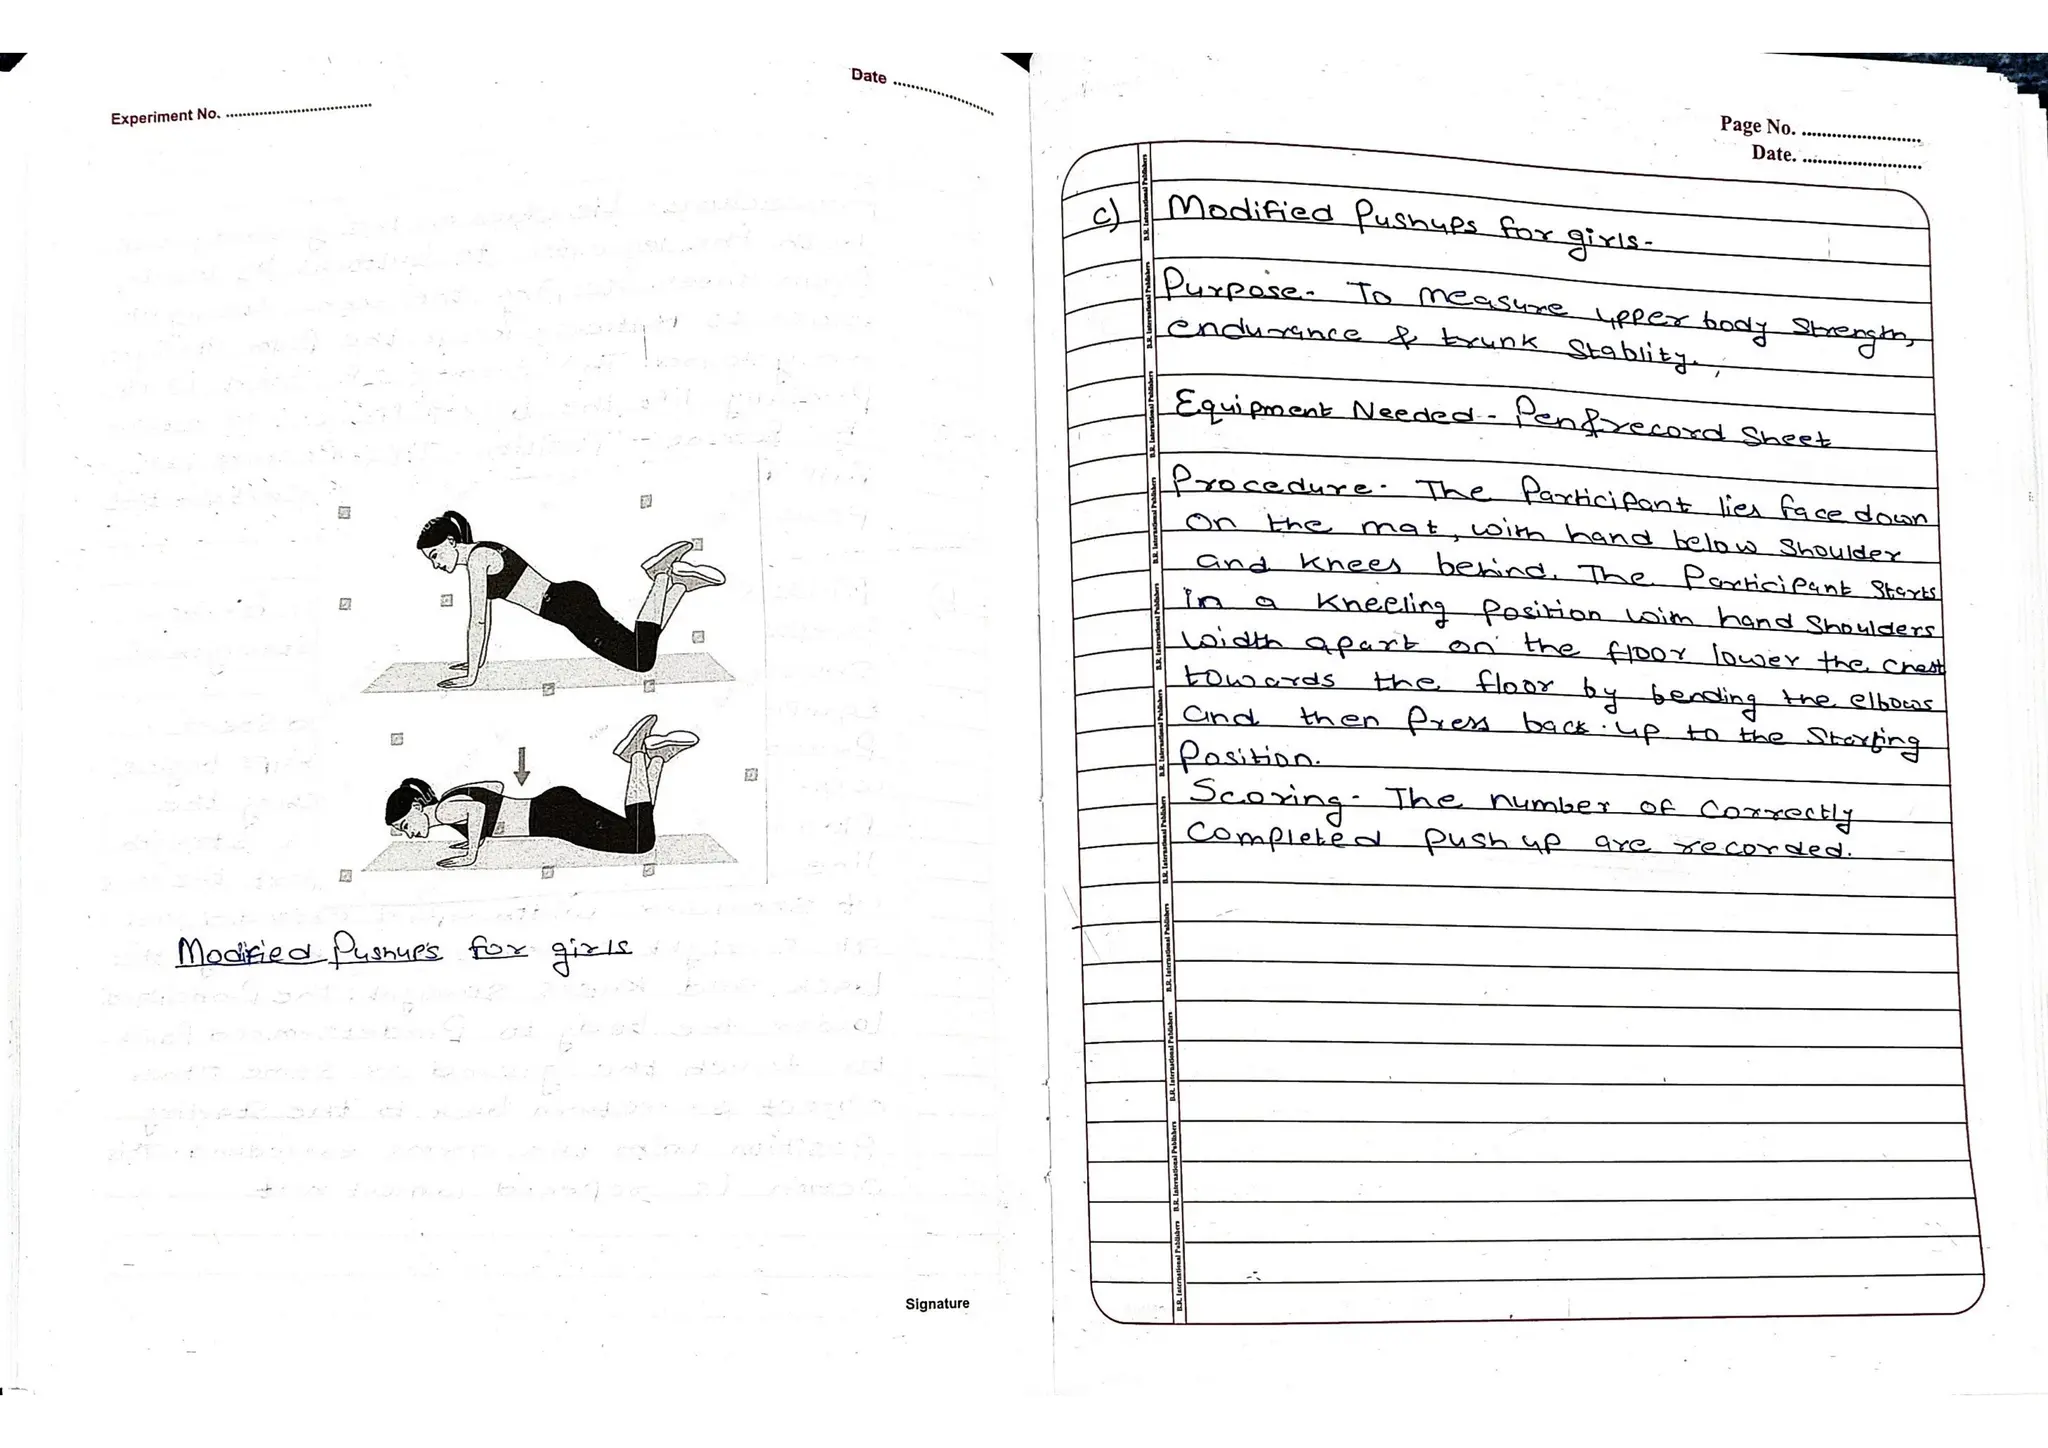 Experiment No. ................................
Date ........................
Modified Pushups for girls
Signature
Page No. ........................
Date. ........................
c) Modified Pushups for girls-
Purpose- To measure upper body strength,
endurance & trunk Stablity.
Equipment Needed - Pen & record Sheet
Procedure- The Participant lies face down
on the mat, with hand below Shoulder
and Knees behind. The Participant Starts
in a Kneeling Position with hand Shoulders
width apart on the floor lower the chest
towards the floor by bending the elbows
and then Press back up to the Starting
Position.
Scoring- The number of Correctly
Completed Push up are recorded.
B.R. International Publishers
B.R. International Publishers
B.R. International Publishers
B.R. International Publishers
B.R. International Publishers
B.R. International Publishers
B.R. International Publishers
B.R. International Publishers
B.R. International Publishers
B.R. International Publishers
B.R. International Publishers